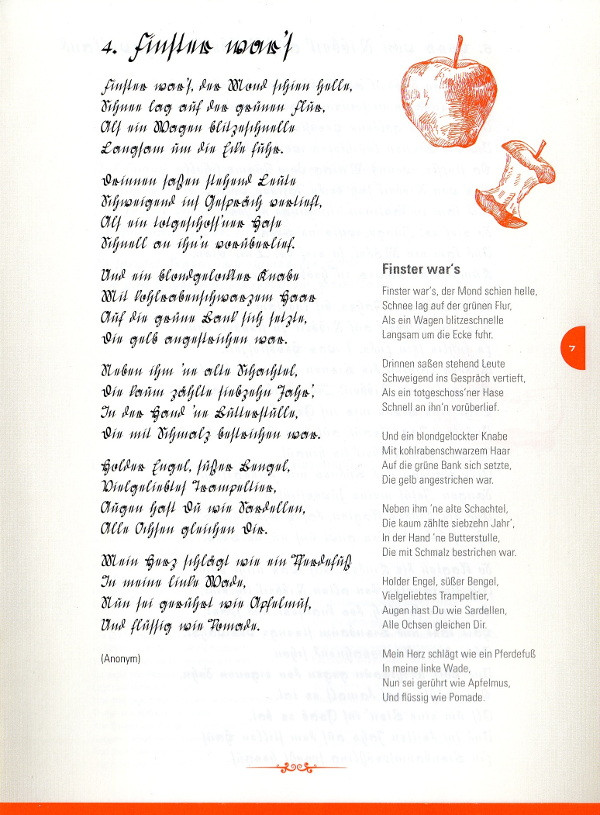 4. Finster war's
Finster war's, der Mond schien helle,
Schnee lag auf der grünen Flur,
Als ein Wagen blitzeschnelle
Langsam um die Ecke fuhr.
Drinnen saßen stehend Leute
Schweigend ins Gespräch vertieft,
Als ein totgeschoss'ner Hase
Schnell an ihn'n vorüberlief.
Und ein blondgelockter Knabe
Mit kohlrabenschwarzem Haar
Auf die grüne Bank sich setzte,
Die gelb angestrichen war.
Neben ihm 'ne alte Schachtel,
Die kaum zählte siebzehn Jahr',
In der Hand 'ne Butterstulle,
Die mit Schmalz bestrichen war.
Holder Engel, süßer Bengel,
Vielgeliebtes Trampeltier,
Augen hast Du wie Sardellen,
Alle Ochsen gleichen Dir.
Mein Herz schlägt wie ein Pferdefuß
In meine linke Wade,
Nun sei gerührt wie Apfelmus,
Und flüssig wie Pomade.
(Anonym)
Finster war's
Finster war's, der Mond schien helle,
Schnee lag auf der grünen Flur,
Als ein Wagen blitzeschnelle
Langsam um die Ecke fuhr.
Drinnen saßen stehend Leute
Schweigend ins Gespräch vertieft,
Als ein totgeschoss'ner Hase
Schnell an ihn'n vorüberlief.
Und ein blondgelockter Knabe
Mit kohlrabenschwarzem Haar
Auf die grüne Bank sich setzte,
Die gelb angestrichen war.
Neben ihm 'ne alte Schachtel,
Die kaum zählte siebzehn Jahr',
In der Hand 'ne Butterstulle,
Die mit Schmalz bestrichen war.
Holder Engel, süßer Bengel,
Vielgeliebtes Trampeltier,
Augen hast Du wie Sardellen,
Alle Ochsen gleichen Dir.
Mein Herz schlägt wie ein Pferdefuß
In meine linke Wade,
Nun sei gerührt wie Apfelmus,
Und flüssig wie Pomade.
7